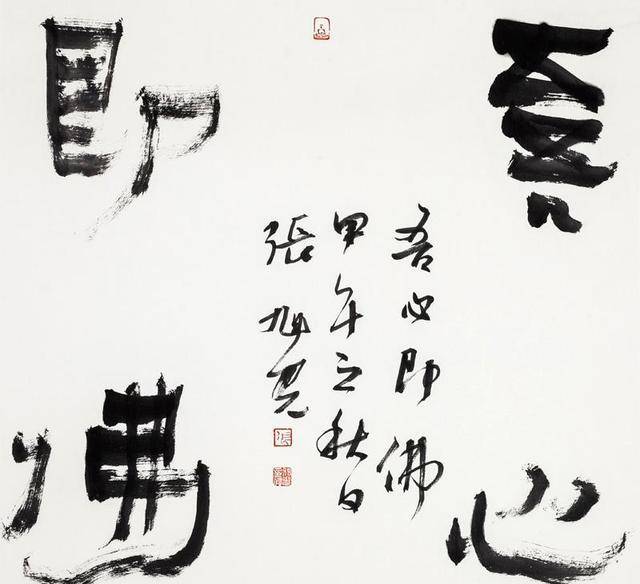 吾心
即佛
吾心即佛
甲午之秋日
張旭光